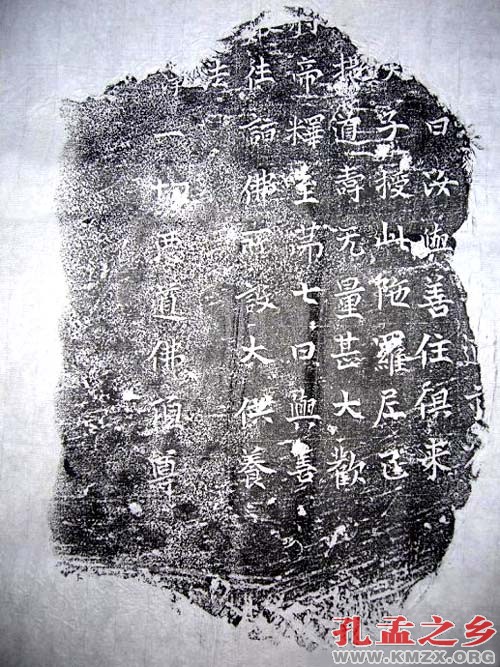 日汝與善住俱来
子授此陁羅尼已
提道壽无量甚大歡
時帝釋至苐七日與善
往詣佛所設大供養
一切惡道佛頂尊
孔孟之乡
WWW.KMZX.ORG